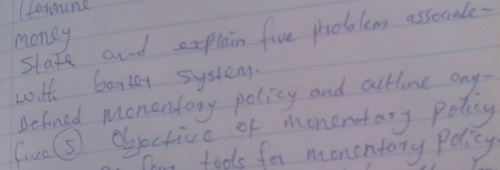 money
State and explain five problem associate-
with barter System.
Defined monentary policy and outline any-
five (5) Objective of monentary policy
tools for monentary Policy.